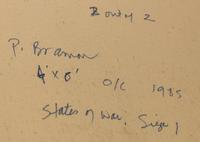 2 out of 2
P. Brannan
4' x 6' O/C 1985
States of War, Siege 1